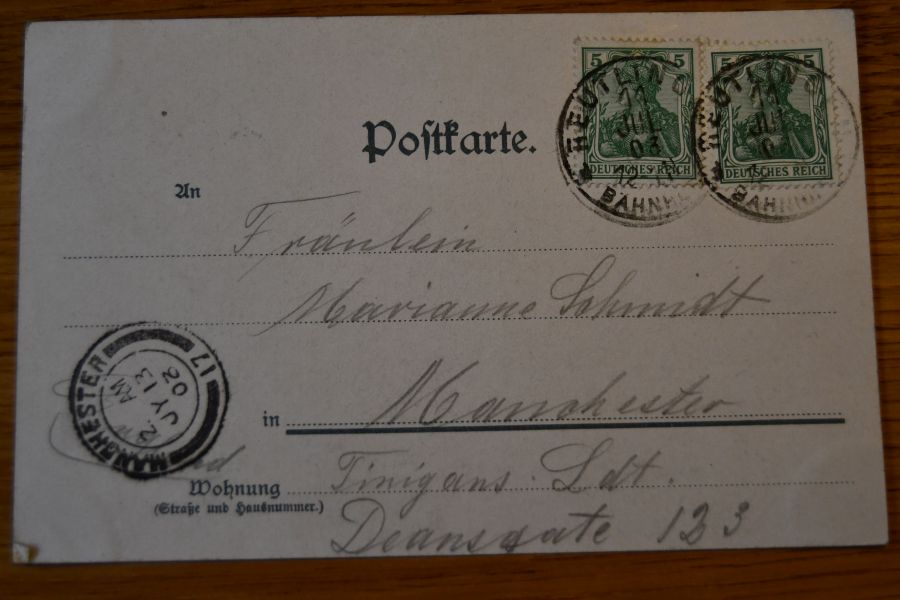 5 5
DEUTSCHES REICH
REUTLING
11
JUL
03
BAHNH
5
DEUTSCHES REICH
REUTLING
11
JUL
03
BAHNH
Postkarte.
An
Fräulein
Marianne Schmidt
in Manchester
Wohnung Finigans. Ldt.
(Straße und Hausnummer.)
Deansgate 123
MANCHESTER
17
AM
JY 13